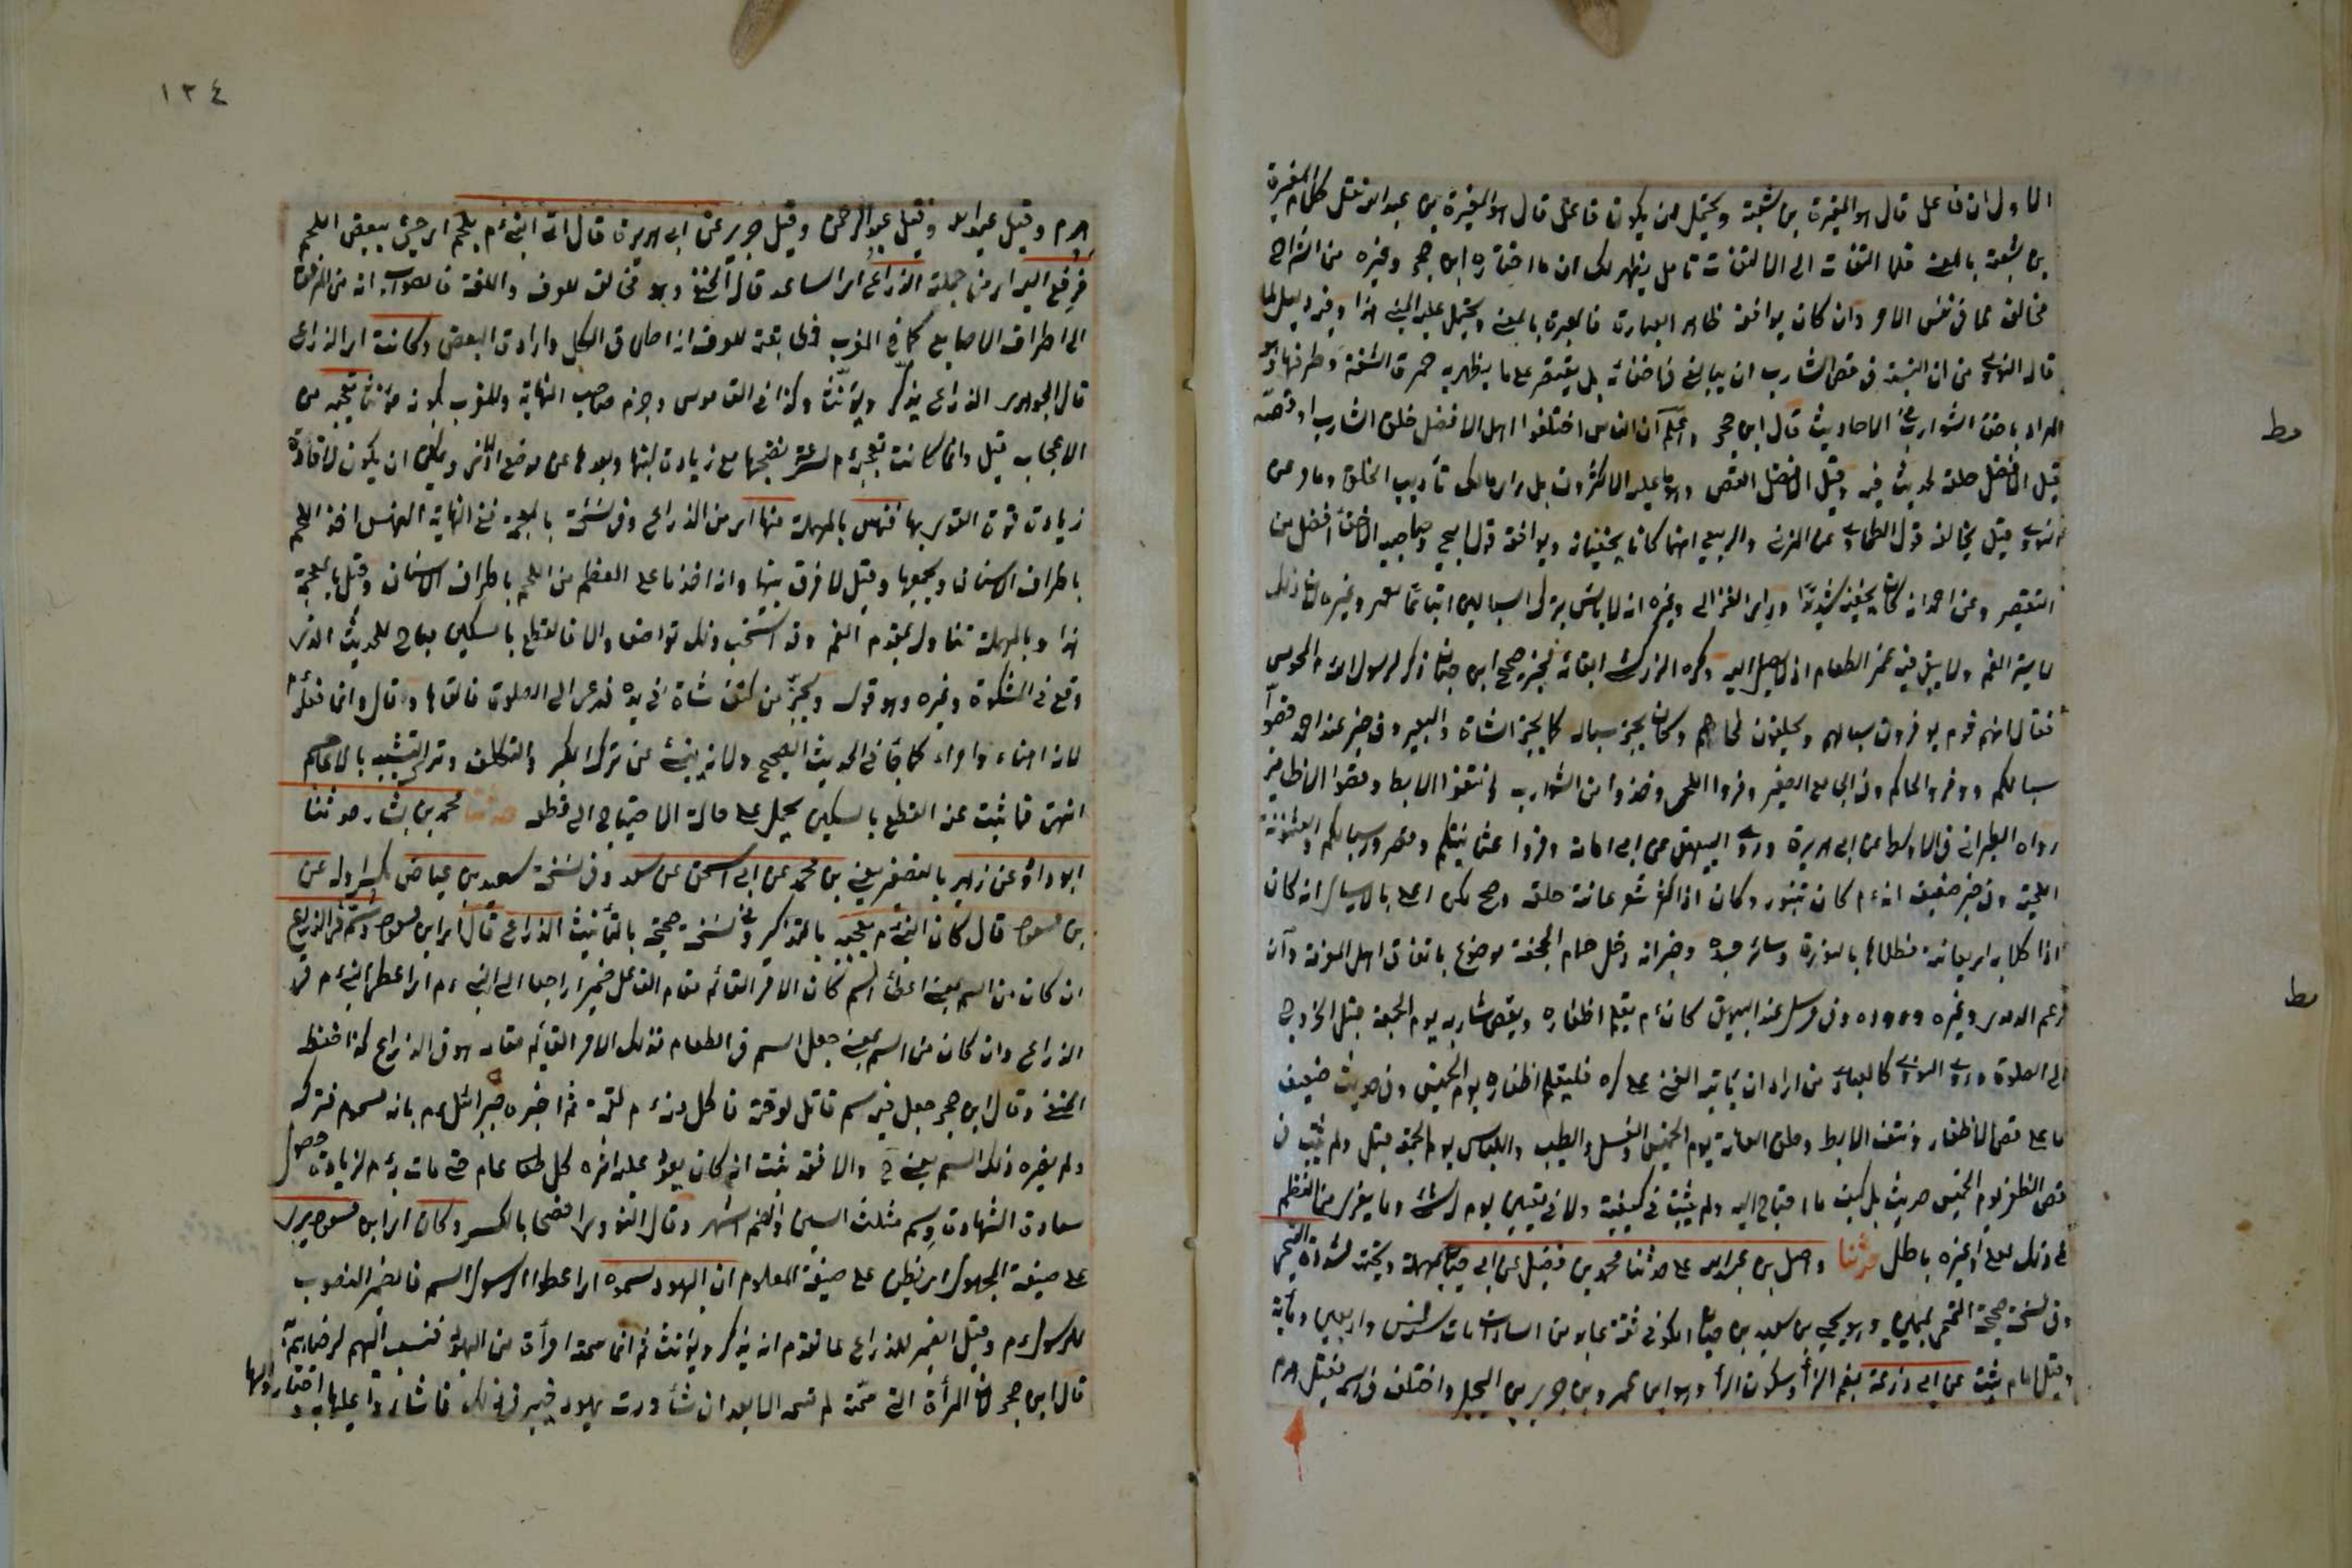 الاول ان فاعل قال هو المغيرة بن شعبة ويحتمل ان يكون فاعل قال هو المغيرة بن عبد الله نقل كلام المغيرة
بن شعبة بالمعنى قلما التفت الى الالتفات تامل يظهر لك ان ما اختاره ابن حجر وغيره من الشراح
مخالف لما في نفس الامر وان كان يوافقه ظاهر العبارة فالعبرة بالمعنى ويحتمل عليه المبنى هذا وفيه دليل لما
قاله النووي من ان السنة في قص الشارب ان يبالغ في اخفائه بل يقتصر على ما يظهر به حمرة الشفة وطرفها وهو
المراد باحفاء الشوارب في الاحاديث قال ابن حجر واعلم ان الناس اختلفوا هل الافضل حلق الشارب او قصه
قيل الافضل حلقه لحديث فيه وقيل الافضل القص وهو ما عليه الاكثرون بل راى مالك تأديب الحالق وما مر عن
النووي قيل يخالفه قول الطحاوي عن المزني والربيع انهما كانا يحفيانه ويوافقه قول ابي حنيفة وصاحبيه الاحفاء افضل من
التقصير وعن احمد انه كان يحفيه شديدا وراى الغزالي وغيره انه لا بأس بترك السبالين اتباعا لعمر وغيره لان ذلك
لا يستر الفم ولا يبقى فيه غمر الطعام اذ لا يصل اليه وكره الزركشي ابقائه لخبر صحيح ابن حبان ذكر لرسول الله م المجوس
فقال انهم قوم يوفرون سبالهم ويحلقون لحاهم وكان يجز سباله كما يجز الشاة والبعير وفي خبر عند احمد قصوا
سبالكم ووفروا لحاكم وفي الجامع الصغير وفروا اللحى وخذوا من الشوارب وانتفوا الابط وقصوا الاظافير
رواه الطبراني في الاوسط عن ابي هريرة وروى البيهقي عن ابي امامة وفروا عثانينكم وقصروا سبالكم والعثنون
اللحية وفي خبر ضعيف انه م كان لا يتنور وكان اذا كثر شعر عانته حلقه وصح لكن اعل بالارسال انه كان
اذا طلا بدأ بعانته فطلاها بالنورة وسائر جسده وخبر انه دخل حمام الجحفة موضوع باتفاق اهل المعرفة وان
زعم الدميري وغيره وروده وفي مرسل عند البيهقي كان م يقلم اظفاره ويقص شاربه يوم الجمعة قبل الخروج
الى الصلوة وروى النووي كالعبادي من اراد ان يأتيه الغنى على كره فليقلم اظفاره يوم الخميس وفي حديث ضعيف
يا علي قص الاظفار ونتف الابط وحلق العانة يوم الخميس والغسل والطيب واللباس يوم الجمعة قيل ولم يثبت في
قص الظفر يوم الخميس حديث بل كيف ما احتاج اليه ولم يثبت في كيفيته ولا في تعيين يوم له شئ وما يعزى من النظم
في ذلك لعلي او غيره باطل حدثنا واصل بن عبد الاعلى حدثنا محمد بن فضيل عن ابي حيان بمهملة وتحتية مشددة التيمي
وفي نسخة صحيحة التيمي بميمين وهو يحيى بن سعيد بن حيان الكوفي ثقة عابد من السادسة مات سنة خمس واربعين ومأية
وقيل امام ثبت عن ابي زرعة بضم الزاء وسكون الراء وهو ابن عمرو بن جرير بن البجلي واختلف في اسمه فقيل هرم
مط
مط
١٣٤
هرم وقيل عبد الله وقيل عبد الرحمن وقيل جرير عن ابي هريرة قال اتي النبي م بلحم اي جيء ببعض اللحم
فرفع اليه اي من جملته الذراع اي الساعد قال الحنفي وهو مخالف للعرف واللغة فالصواب انه من المرفق
الى اطراف الاصابع كما في المغرب فمطابقته للعرف انه اطلاق الكل وارادة البعض وكانت اي الذراع
قال الجوهري الذراع يذكر ويؤنث وكذا في القاموس وجزم صاحب النهاية والمغرب بكونه مؤنثا تعجبه من
الاعجاب قيل وانما كانت تعجبه م لسرعة نضجها مع زيادة لينها وبعدها عن موضع الاذى ويمكن ان يكون لافادة
زيادة قوة القوى بها فنهس بالمهملة منها اي من الذراع وفي نسخة بالمعجمة ففي النهاية النهس اخذ اللحم
باطراف الاسنان وبجميعها وقيل لا فرق بينهما وانه اخذ ما على العظم من اللحم باطراف الاسنان وقيل بالمعجمة
هذا وبالمهملة تناوله بمقدم الفم وقد استحب ذلك تواضعا والا فالقطع بالسكين مباح للحديث الذي
وقع في المشكوة وغيره وهو قوله ويحتز من كتف شاة في يده فدعى الى الصلوة فالقاها وقال وانما فعله م
لانه اهناء وامراء كما جاء في الحديث الصحيح ولانه ينبئ عن ترك الكبر والتكلف وترك التشبه بالاعاجم
انتهى فما يثبت عنه القطع بالسكين يحمل على حالة الاحتياج الى قطعه حدثنا محمد بن بشار حدثنا
ابو داود عن زهير بالتصغير يعني بن محمد عن ابي اسحق عن سعد وفي نسخة سعيد بن عياض بكسر اوله عن
بن مسعود قال كان النبي م يعجبه بالتذكير وفي نسخة صحيحة بالتأنيث الذراع قال اي ابن مسعود وسم في الذراع
ان كان من السم بمعنى اعطاء السم كان الامر القائم مقام الفاعل ضميرا راجعا الى النبي م اي اعطي النبي م في
الذراع وان كان من السم بمعنى جعل السم في الطعام فذلك الامر القائم مقامه هو في الذراع كذا حققه
الحنفي وقال ابن حجر جعل فيه سم قاتل لوقته فاكل منه م لقمة ثم اخبره جبرائيل م بانه مسموم فتركه
ولم يضره ذلك السم يعني ح والا فقد ثبت انه كان يعود عليه اثره كل عام حتى مات به م لزيادة حصول
سعادة الشهادة وسم مثلث السين والضم اشهر وقال النووي افصحها بالكسر وكان اي ابن مسعود يرى
على صيغة المجهول اي يظن على صيغة المعلوم ان اليهود سموه اي اعطوا الرسول السم فالضمير المنصوب
للرسول م وقيل الضمير للذراع لما تقدم انه يذكر ويؤنث ثم انما سمته امرأة من اليهود فنسب اليهم لرضاهم به
قال ابن حجر لان المرأة التي سمته لم تسمه الا بعد ان شاورت يهود خيبر في ذلك فاشاروا عليها به واختاروا لها